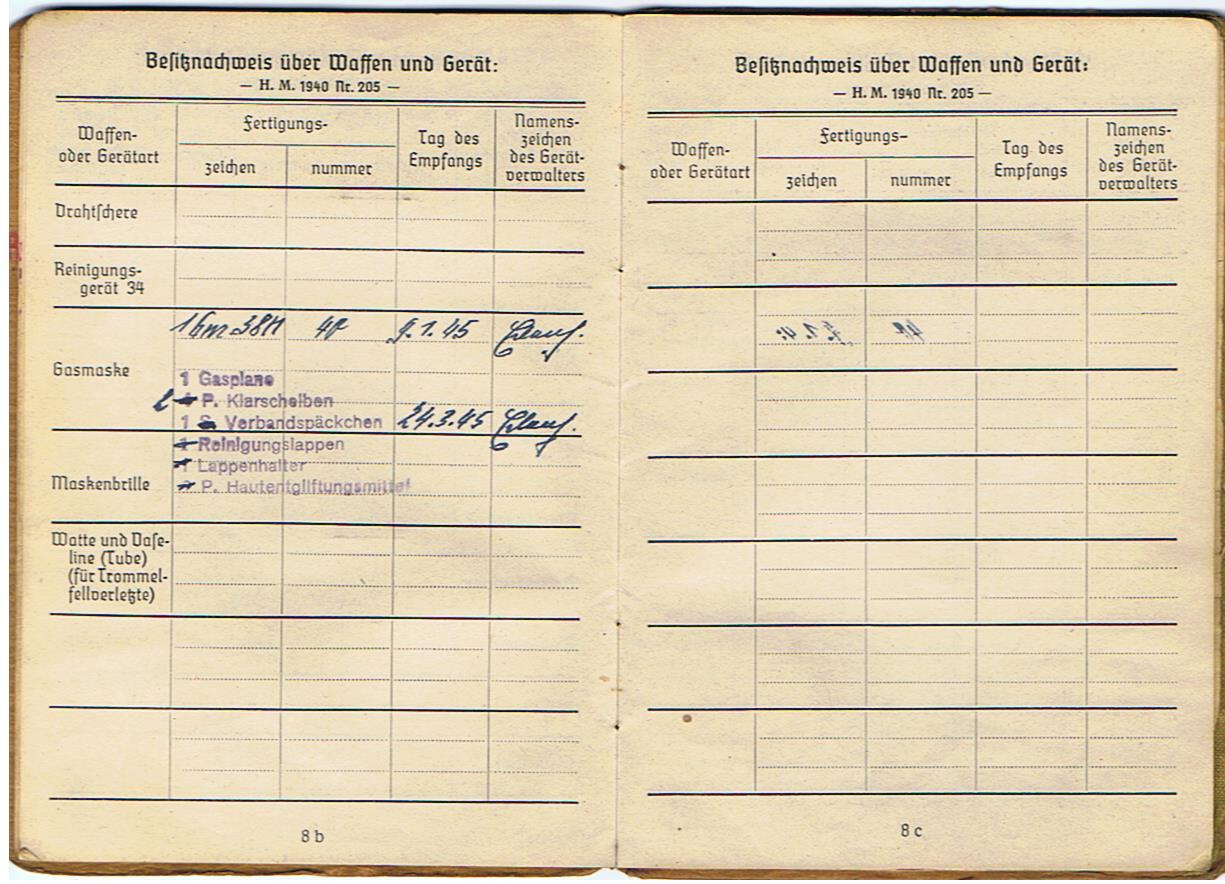 Besitznachweis über Waffen und Gerät:
— H. M. 1940 Nr. 205 —
Waffen-
oder Gerätart
Fertigungs-
zeichen
nummer
Tag des
Empfangs
Namens-
zeichen
des Gerät-
verwalters
Drahtschere
Reinigungs-
gerät 34
9.1.45
Gasmaske
1 Gasplane
2 P. Klarscheiben
1 Verbandspäckchen 24.3.45
1 Reinigungslappen
1 Lappenhalter
P. Hautentgiftungsmittel
Maskenbrille
Watte und Vase-
line (Tube)
(für Trommel-
fellverletzte)
8 b
Besitznachweis über Waffen und Gerät:
— H. M. 1940 Nr. 205 —
Waffen-
oder Gerätart
Fertigungs-
zeichen
nummer
Tag des
Empfangs
Namens-
zeichen
des Gerät-
verwalters
8 c